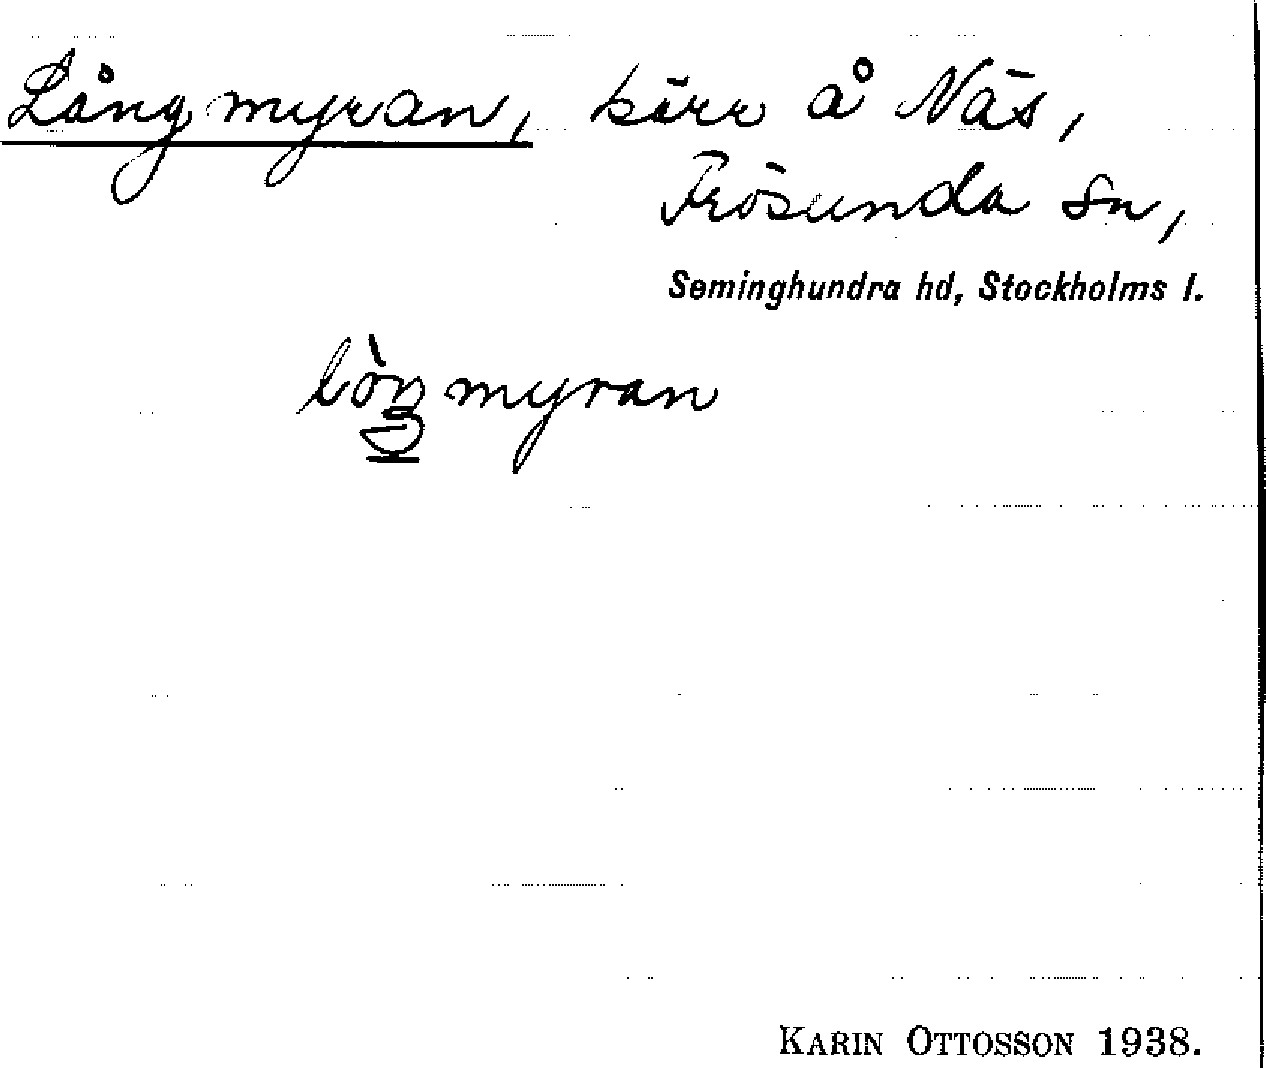 Långmyran, kärr å Näs,
Frösunda sn,
Seminghundra hd, Stockholms l.
lòŋmyran
KARIN OTTOSSON 1938.